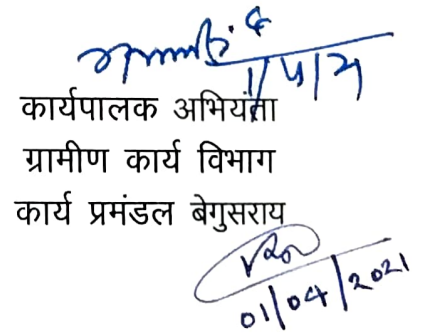 1/4/21
कार्यपालक अभियंता
ग्रामीण कार्य विभाग
कार्य प्रमंडल बेगुसराय
01/04/2021